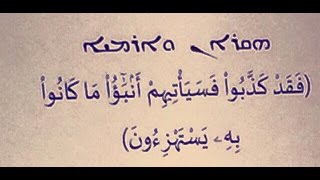 (فَقَدْ كَذَّبُوا۟ فَسَيَأْتِيهِمْ أَنۢبَٰٓؤُا۟ مَا كَانُوا۟
بِهِۦ يَسْتَهْزِءُونَ)